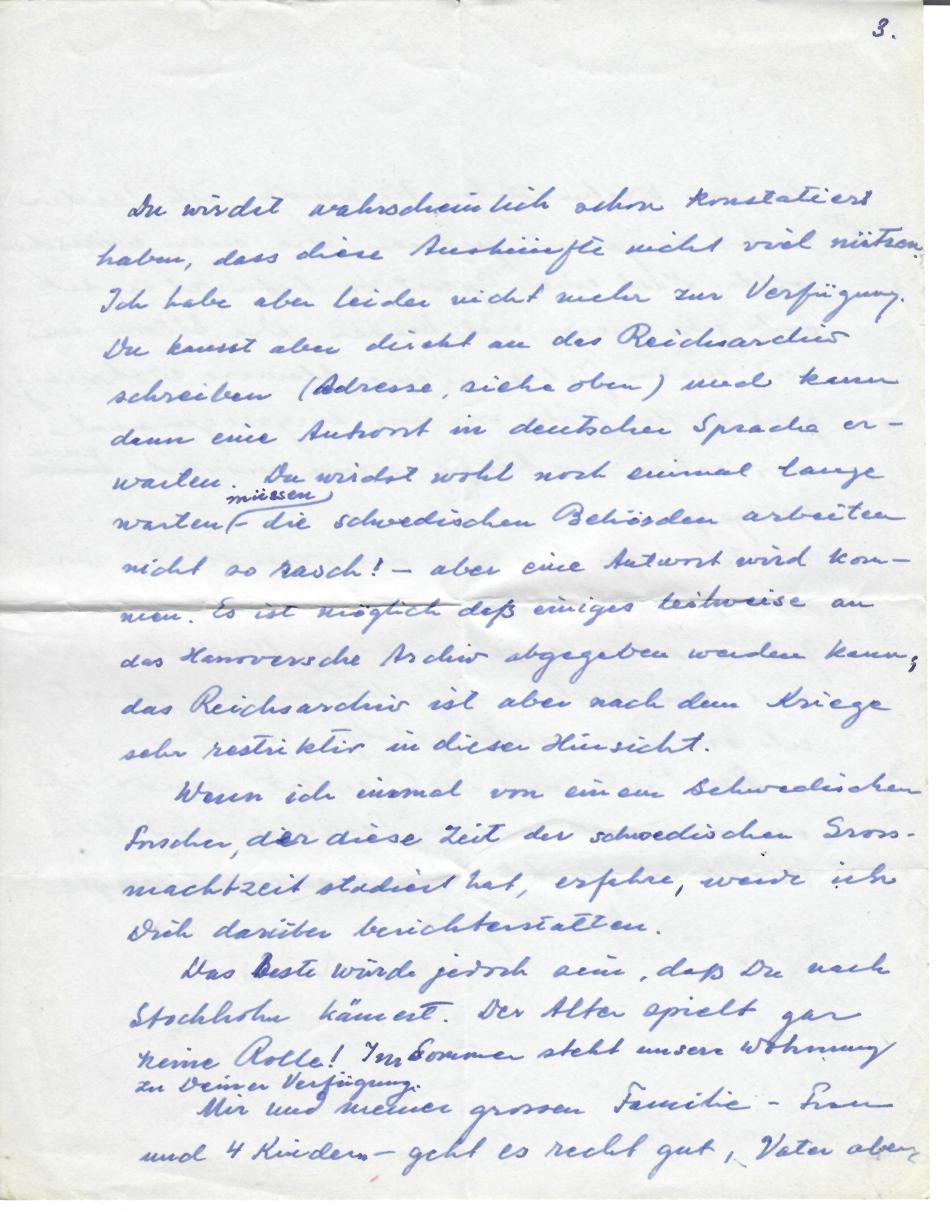 3.
Du wirdst wahrscheinlich schon konstatiert
haben, dass diese Auskünfte nicht viel nützen.
Ich habe aber leider nicht mehr zur Verfügung.
Du kannst aber direkt an das Reichsarchiv
schreiben (Adresse, siehe oben) und kann
dann eine Antwort in deutscher Sprache er-
warten. Du wirdst wohl noch einmal lange
müssen
warten – die schwedischen Behörden arbeiten
nicht so rasch! – aber eine Antwort wird kom-
men. Es ist möglich daß einiges teilweise an
das Hanoversche Archiv abgegeben werden kann;
das Reichsarchiv ist aber nach dem Kriege
sehr restriktiv in dieser Hinsicht.
Wenn ich einmal von einem Schwedischen
Forscher, der diese Zeit der schwedischen Gross-
machtzeit studiert hat, erfahre, werde ich
Dich darüber berichterstatten.
Das Beste würde jedoch sein, daß Du nach
Stockholm kämest. Der Alter spielt gar
keine Rolle! Im Sommer steht unsere Wohnung
zu Deiner Verfügung.
Mir und meiner grossen Familie – Frau
und 4 Kindern – geht es recht gut, Vater aber